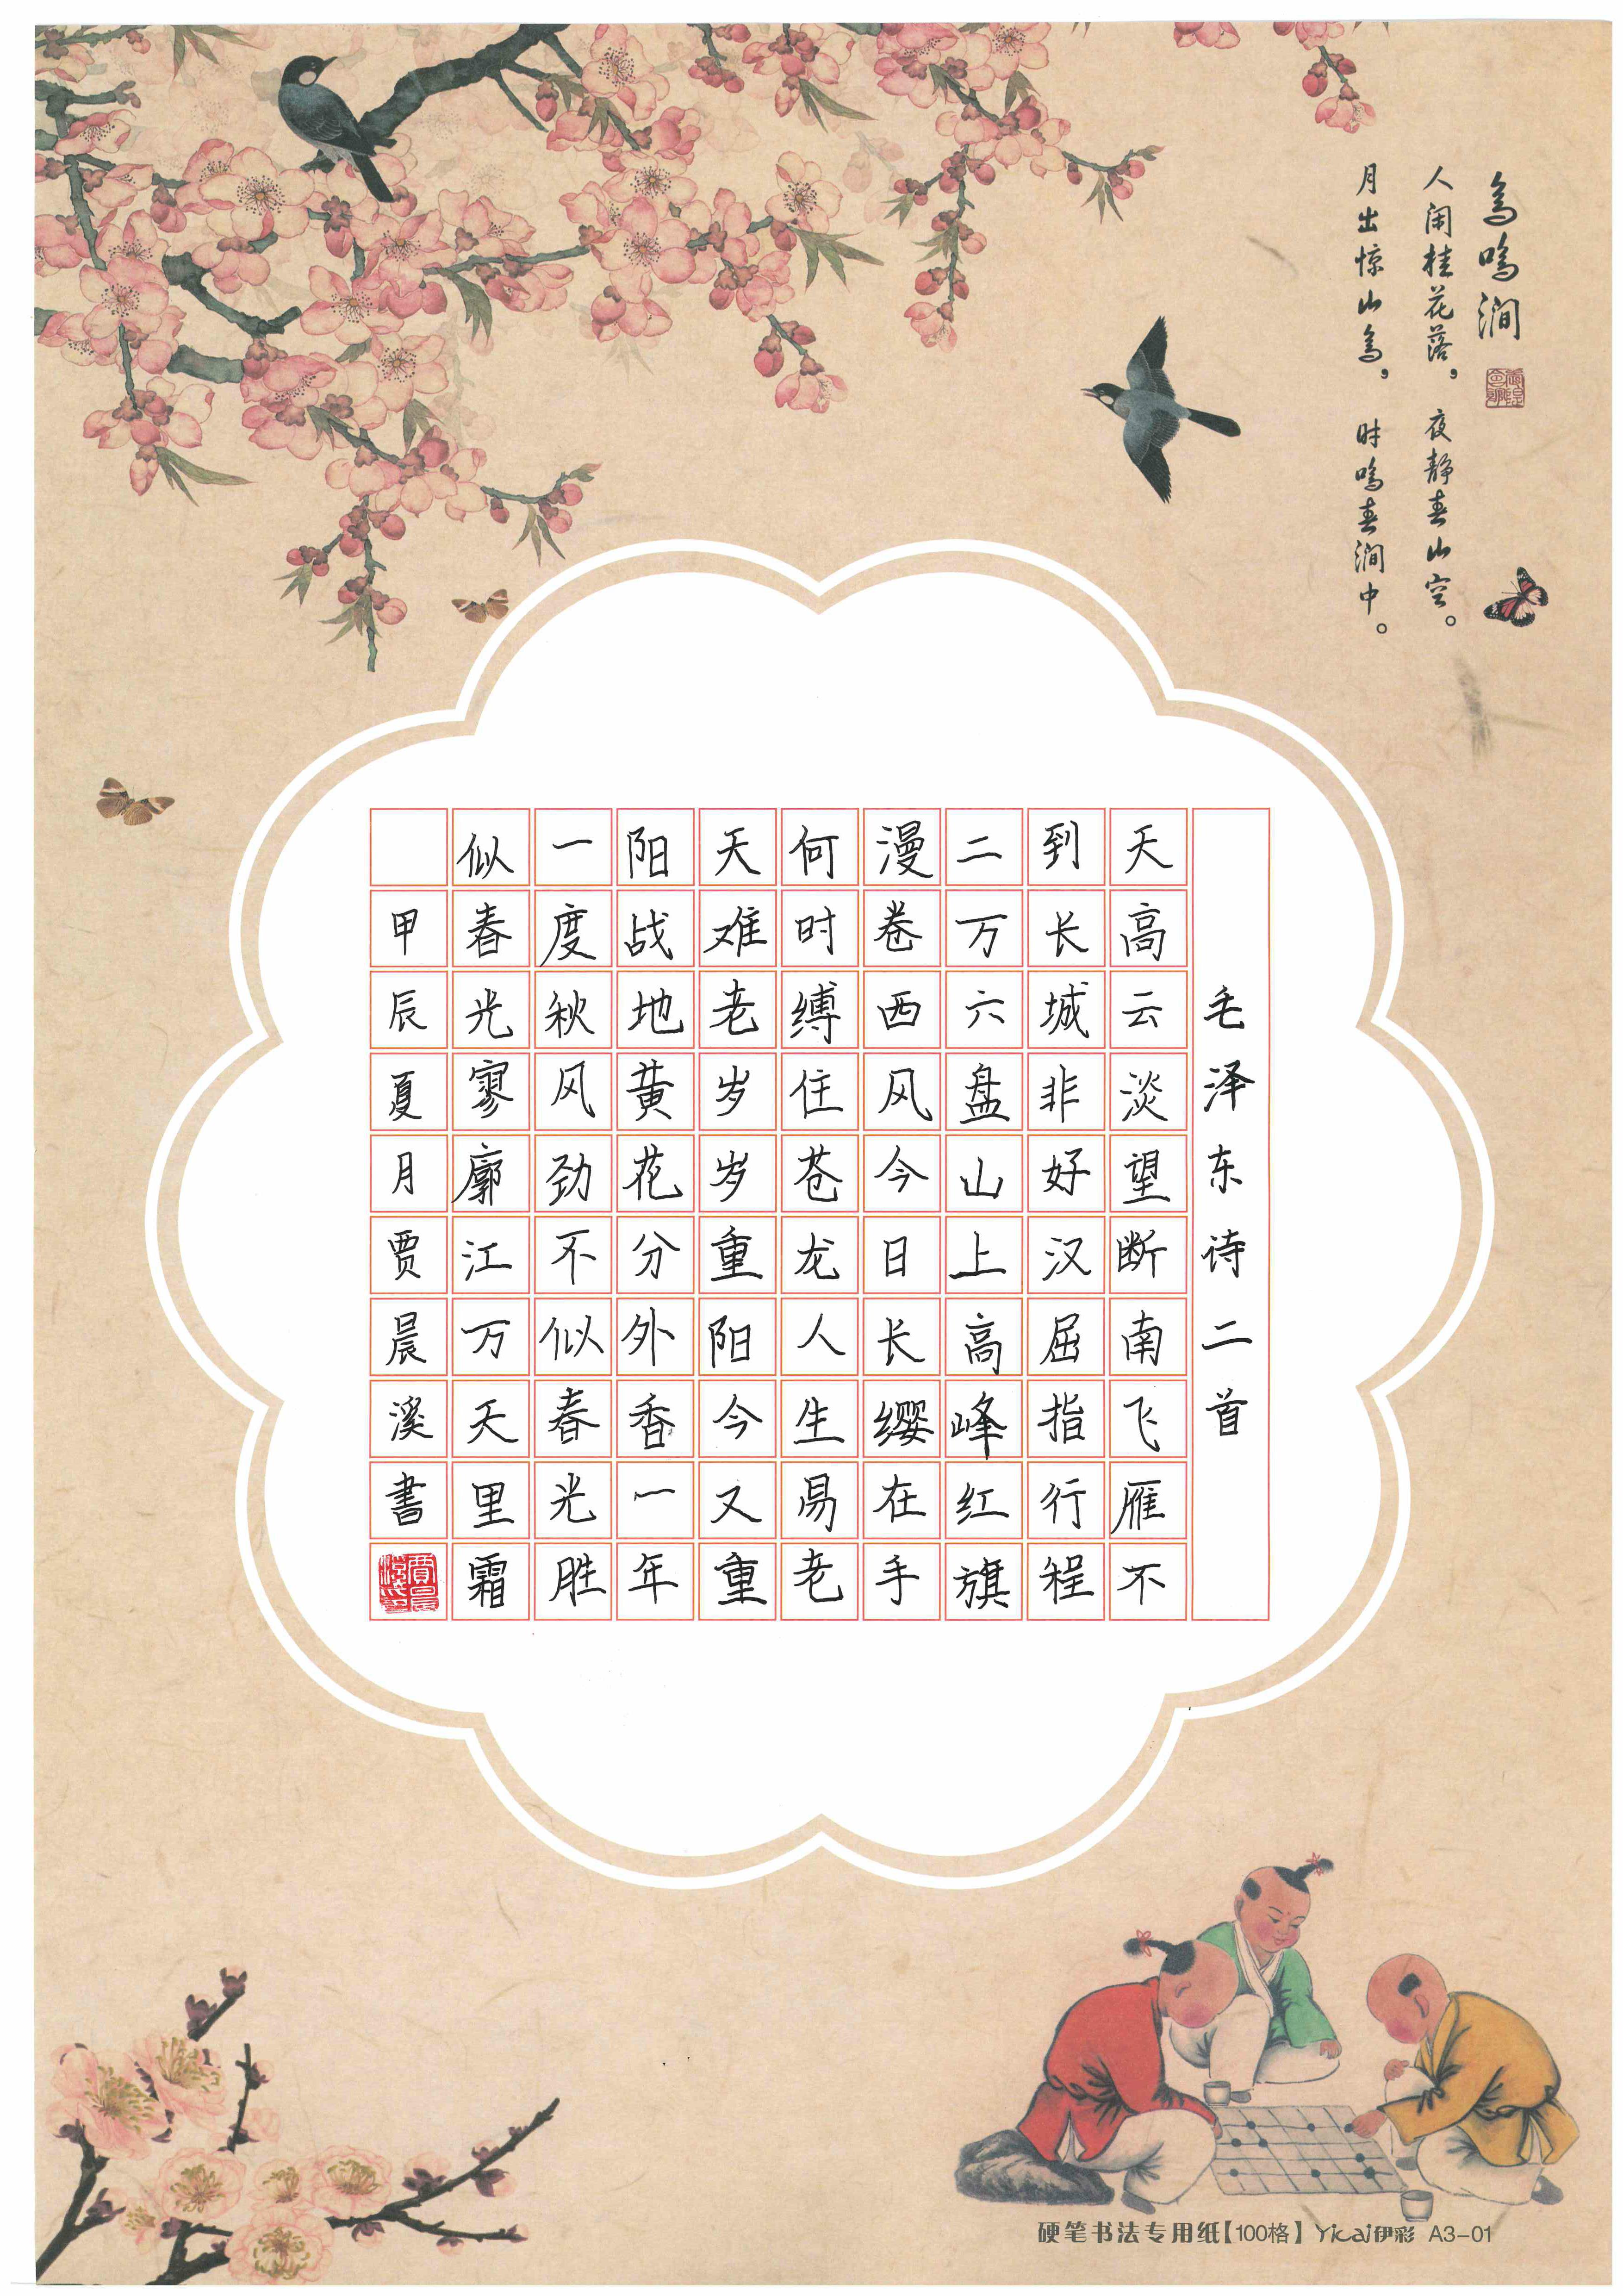 鸟鸣涧
人闲桂花落，夜静春山空。
月出惊山鸟，时鸣春涧中。
毛泽东诗二首
天高云淡望断南飞雁不
到长城非好汉屈指行程
二万六盘山上高峰红旗
漫卷西风今日长缨在手
何时缚住苍龙人生易老
天难老岁岁重阳今又重
阳战地黄花分外香一年
一度秋风劲不似春光胜
似春光寥廓江万天里霜
甲辰夏月贾晨溪書
硬笔书法专用纸【100格】 Yicai伊彩 A3-01